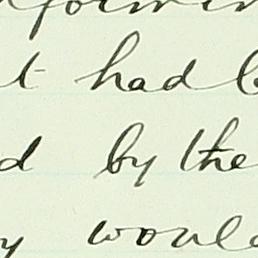 t had
d by the
y would